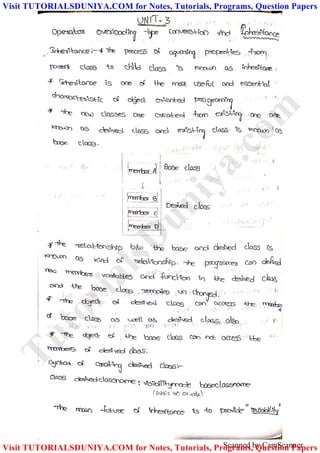 Visit TUTORIALSDUNIYA.COM for Notes, Tutorials, Programs, Question Papers
UNIT-3
Operator overloading type conversion and Inheritance
Inheritance:- * the process of aquaring properties from
parent class to child class is known as inheritance.
* Inheritance is one of the most useful and essential
characteristic of object oriented programming
* the new classes are created from existing one are
known as derived class and existing class is known as
base class.
member A Base class
member B
member C Derived class
member D
* the relationship b/w the base and derived class is
known as kind of relationship. the programer can defined
new members variables and function in the derived class
and the base class remains un changed.
* The object of derived class can access the member
of base class as well as derived class also
* The object of the base class can not access the
members of derived class.
Syntax of creating derived class:-
Class derivedclassname : visibilitymode baseclassname
The main future of inheritance is to provide "reusability"
TutorialsDuniya.com
Scanned by CamScanner
Visit TUTORIALSDUNIYA.COM for Notes, Tutorials, Programs, Question Papers